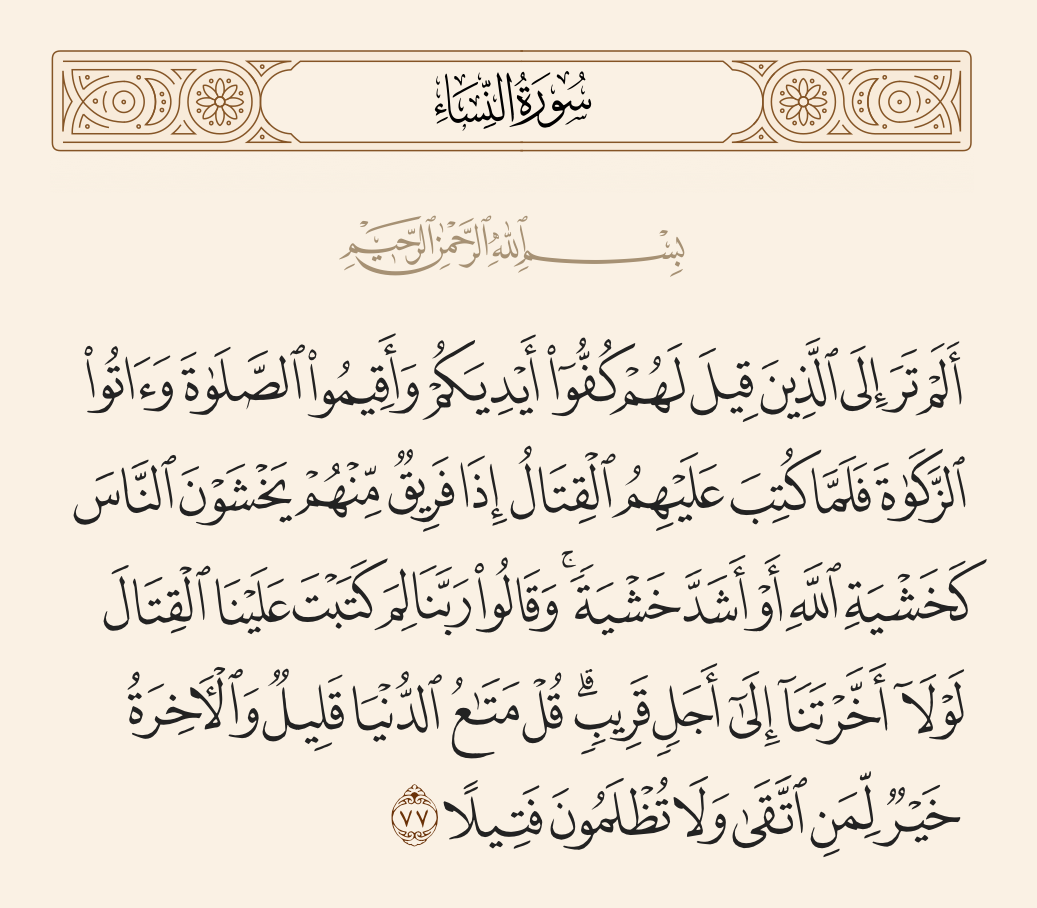 سُورَةُ النِّسَاءِ
بِسْمِ ٱللَّهِ ٱلرَّحْمَٰنِ ٱلرَّحِيمِ
أَلَمْ تَرَ إِلَى ٱلَّذِينَ قِيلَ لَهُمْ كُفُّوٓا۟ أَيْدِيَكُمْ وَأَقِيمُوا۟ ٱلصَّلَوٰةَ وَءَاتُوا۟
ٱلزَّكَوٰةَ فَلَمَّا كُتِبَ عَلَيْهِمُ ٱلْقِتَالُ إِذَا فَرِيقٌ مِّنْهُمْ يَخْشَوْنَ ٱلنَّاسَ
كَخَشْيَةِ ٱللَّهِ أَوْ أَشَدَّ خَشْيَةً ۚ وَقَالُوا۟ رَبَّنَا لِمَ كَتَبْتَ عَلَيْنَا ٱلْقِتَالَ
لَوْلَآ أَخَّرْتَنَآ إِلَىٰٓ أَجَلٍ قَرِيبٍ ۗ قُلْ مَتَـٰعُ ٱلدُّنْيَا قَلِيلٌ وَٱلْـَٔاخِرَةُ
خَيْرٌ لِّمَنِ ٱتَّقَىٰ وَلَا تُظْلَمُونَ فَتِيلًا ٧٧